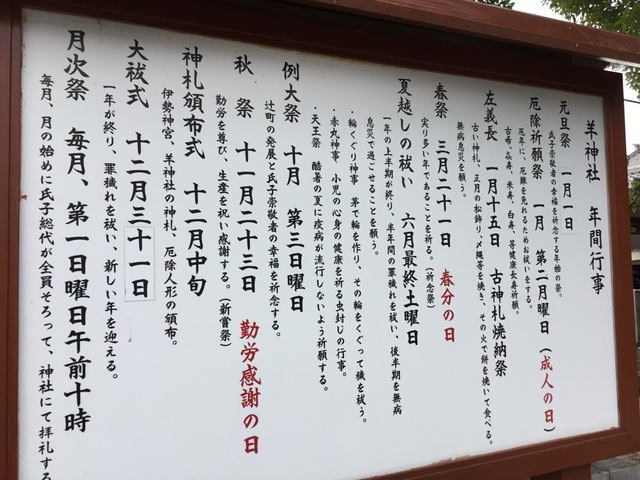 羊神社　年間行事
元旦祭　一月一日
氏子崇敬者の幸福を祈念する年始の祭。
厄除祈願祭　一月　第二月曜日（成人の日）
厄年に、厄難を免れるためお祓いをする。
古希、喜寿、米寿、白寿、等健康長寿祈願。
左義長　一月十五日　古神札焼納祭
古い神札、正月の松飾り、〆縄等を焼き、その火で餅を焼いて食べる。
無病息災を願う。
春祭　三月二十一日　春分の日
実り多い年であることを祈る。（祈念祭）
夏越しの祓い　六月最終土曜日
一年の上半期が終り、半年間の罪穢れを祓い、後半期を無病
息災で過ごせることを願う。
・輪くぐり神事　茅で輪を作り、その輪をくぐって穢を祓う。
・赤丸神事　小児の心身の健康を祈る虫封じの行事。
・天王祭　酷暑の夏に疫病が流行しないよう祈願する。
例大祭　十月　第三日曜日
辻町の発展と氏子崇敬者の幸福を祈念する。
秋祭　十一月二十三日　勤労感謝の日
勤労を尊び、生産を祝い感謝する。（新嘗祭）
神札頒布式　十二月中旬
伊勢神宮、羊神社の神札、厄除人形の頒布。
大祓式　十二月三十一日
一年が終り、罪穢れを祓い、新しい年を迎える。
月次祭　毎月、第一日曜日午前十時
毎月、月の始めに氏子総代が全員そろって、神社にて拝礼する